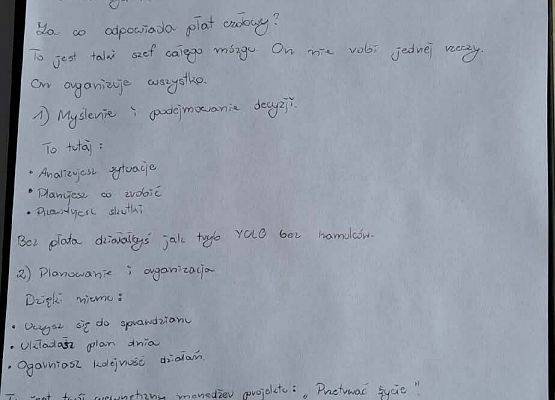 Za co odpowiada płat czołowy?
To jest taki szef całego mózgu On nie robi jednej rzeczy.
On organizuje wszystko.
1) Myślenie i podejmowanie decyzji.
To tutaj:
• Analizujesz sytuacje
• Planujesz co zrobić
• Przewidujesz skutki
Bez płata działałbyś jak tryb YOLO bez hamulców.
2) Planowanie i organizacja
Dzięki niemu:
• Uczysz się do sprawdzianu
• Układasz plan dnia
• Ogarniasz kolejność działań.
To jest twój wewnętrzny menedżer projektu: „Przetrwać życie".